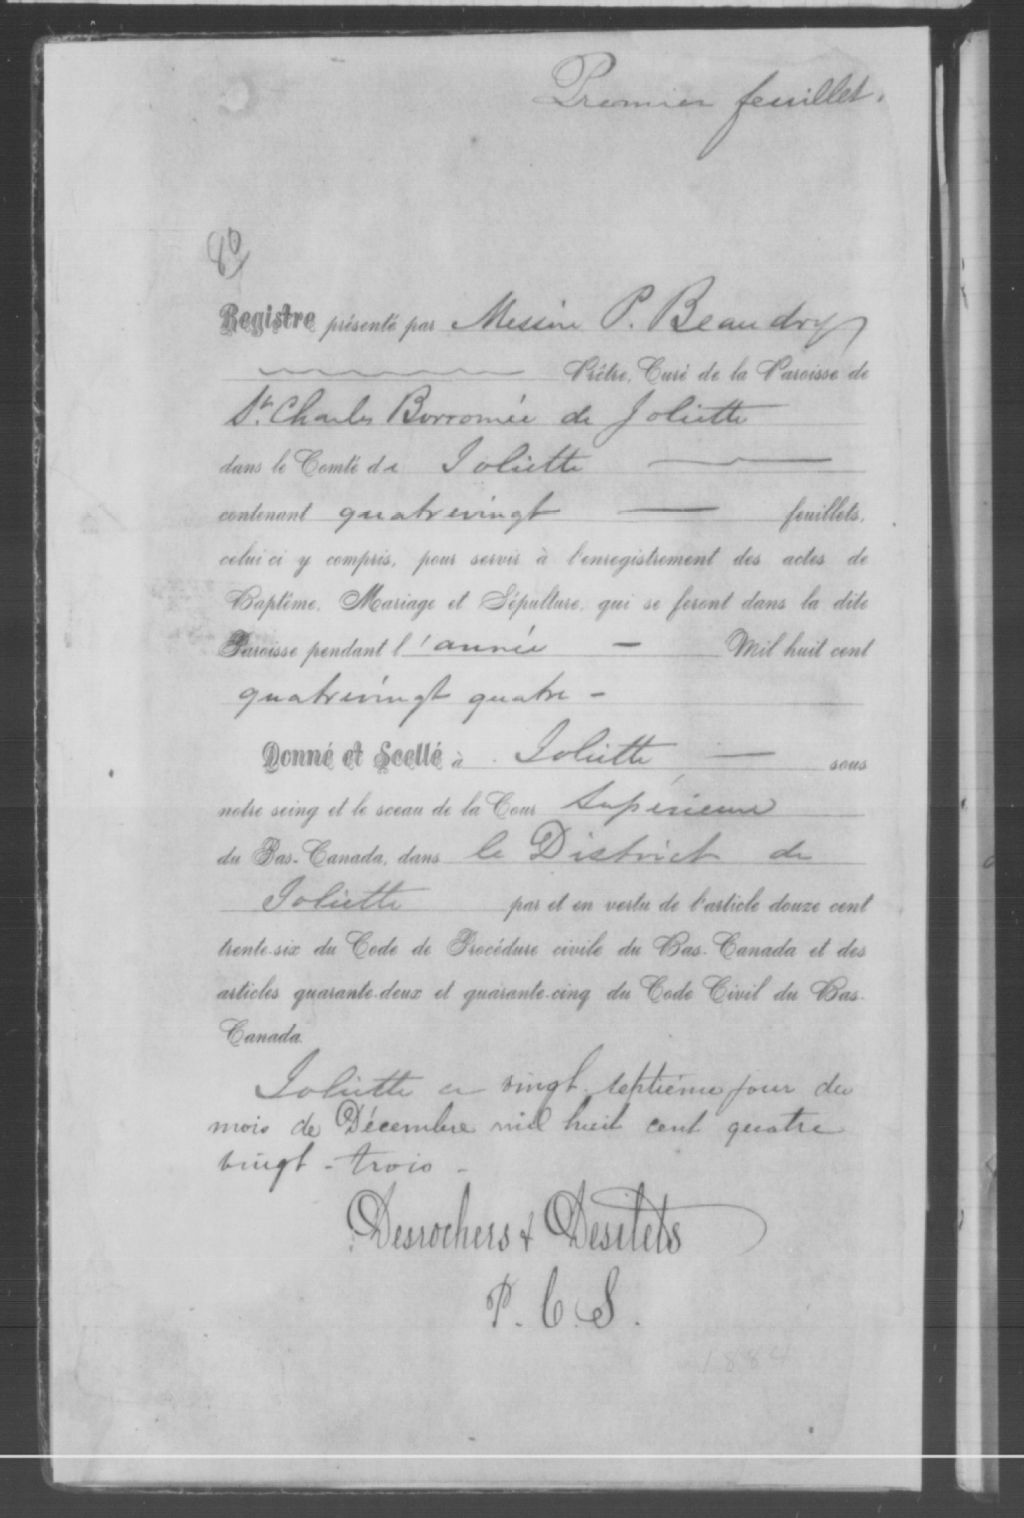 Premier feuillet.
80
Registre présenté par Messire P. Beaudry
Prêtre, Curé de la Paroisse de
St. Charles Borromée de Joliette
dans le Comté de Joliette
contenant quatrevingt feuillets,
celui ci y compris, pour servir à l'enregistrement des actes de
Baptême, Mariage et Sépulture, qui se feront dans la dite
Paroisse pendant l'année - Mil huit cent
quatrevingt quatre -
Donné et Scellé à Joliette sous
notre seing et le sceau de la Cour Supérieure
du Bas-Canada, dans le District de
Joliette par et en vertu de l'article douze cent
trente-six du Code de Procédure civile du Bas-Canada et des
articles quarante-deux et quarante-cinq du Code Civil du Bas-
Canada.
Joliette ce vingt-septième jour du
mois de Décembre mil huit cent quatre
vingt-trois -
Desrochers & Desilets
P. C. S.
1884